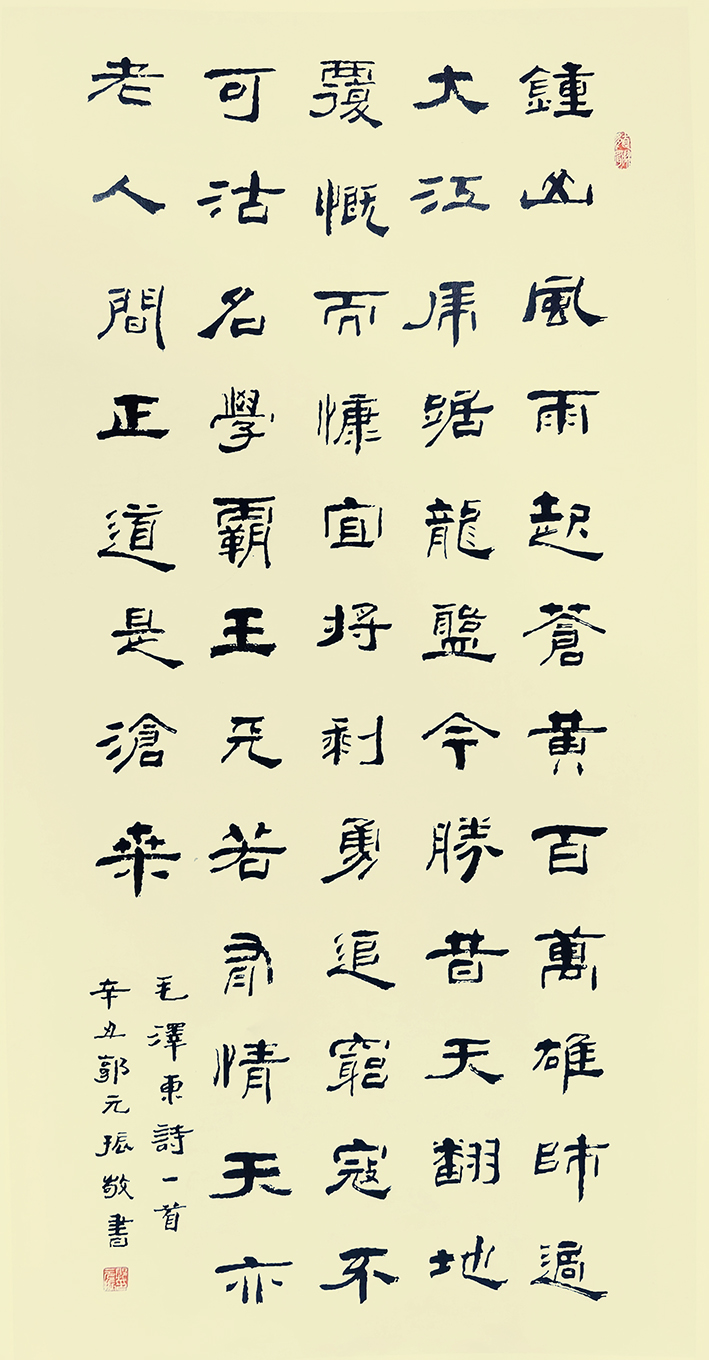 鍾山風雨起蒼黃百萬雄師過
大江虎踞龍盤今勝昔天翻地
覆慨而慷宜将剩勇追窮寇不
可沽名學霸王天若有情天亦
老人間正道是滄桑
毛澤東詩一首
辛丑郭元振敬書